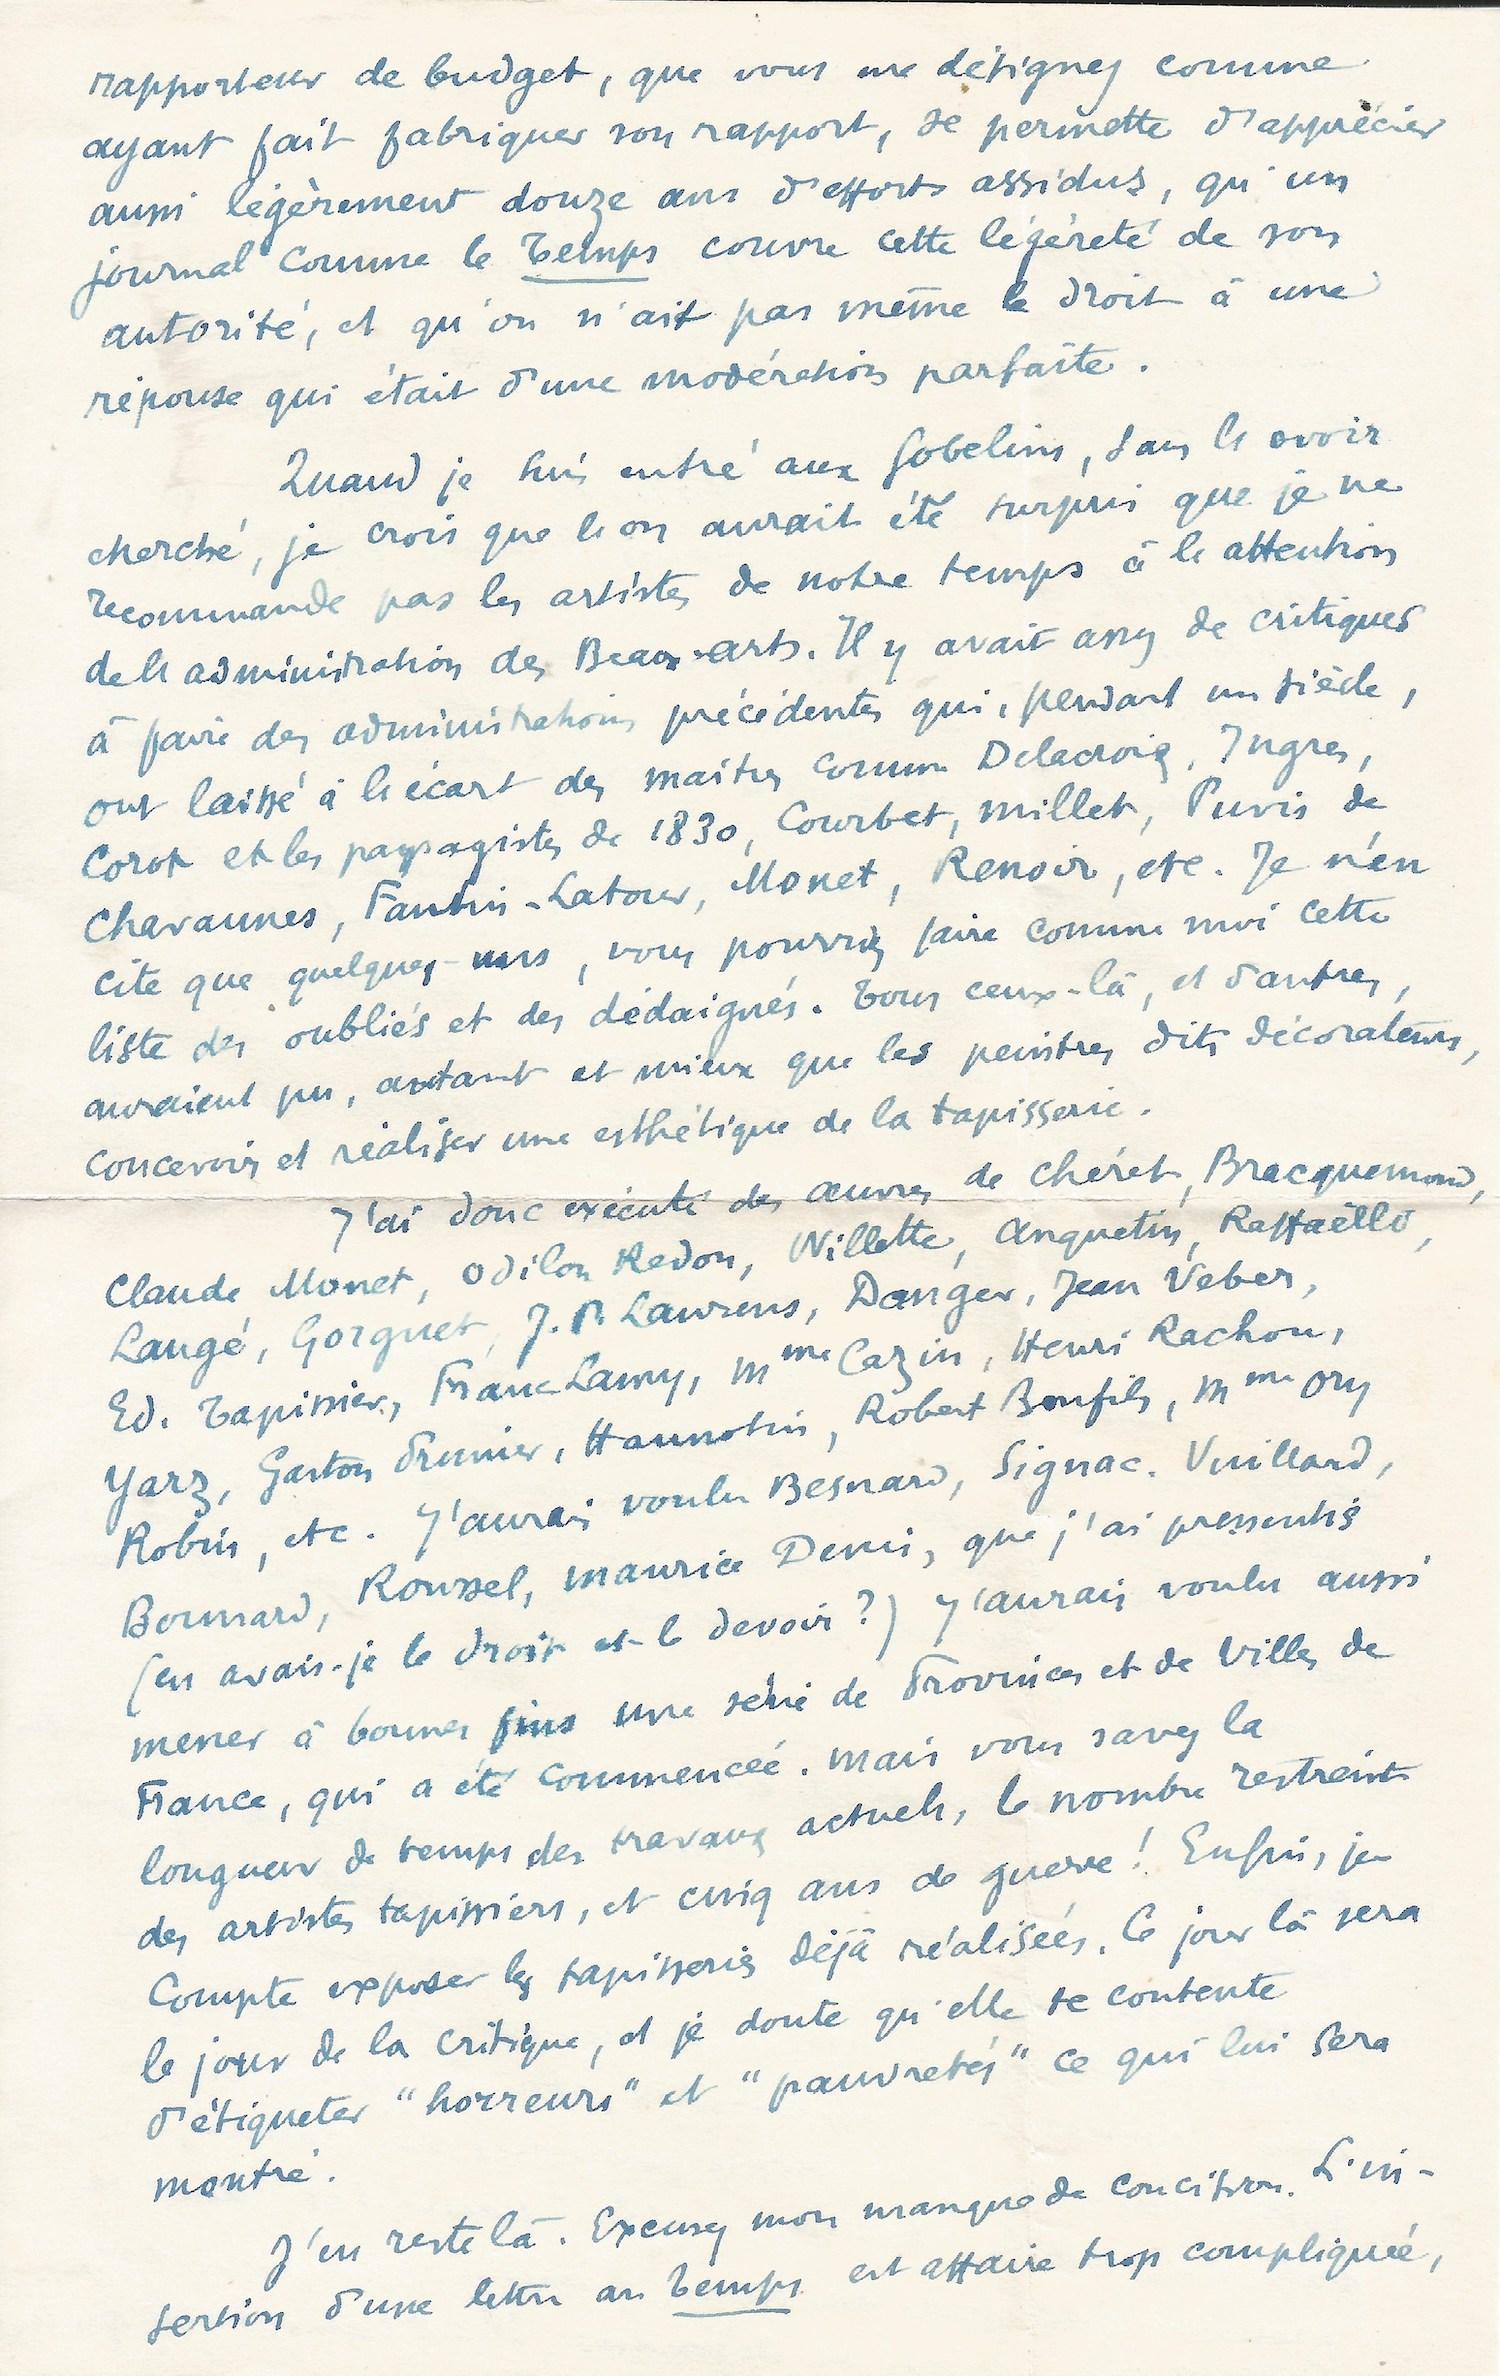 rapporteur de budget, que vous me désignez comme
ayant fait fabriquer son rapport, se permette d'apprécier
aussi légèrement douze ans d'efforts assidus, qu'un
journal comme le Temps couvre cette légèreté de son
autorité, et qu'on n'ait pas même le droit à une
réponse qui était d'une modération parfaite.
Quand je suis entré aux Gobelins, sans l'avoir
cherché, je crois que l'on aurait été surpris que je ne
recommande pas les artistes de notre temps à l'attention
de l'administration des Beaux-arts. Il y avait assez de critiques
à faire des administrations précédentes qui, pendant un siècle,
ont laissé à l'écart des maîtres comme Delacroix, Ingres,
Corot et les paysagistes de 1830, Courbet, Millet, Puvis de
Chavannes, Fantin-Latour, Monet, Renoir, etc. Je n'en
cite que quelques-uns, vous pourriez faire comme moi cette
liste des oubliés et des dédaignés. Tous ceux-là, et d'autres,
auraient pu, autant et mieux que les peintres dits décorateurs,
concevoir et réaliser une esthétique de la tapisserie.
J'ai donc exécuté des œuvres de Chéret, Bracquemond,
Claude Monet, Odilon Redon, Willette, Anquetin, Raffaëlli,
Laugé, Gorguet, J. P. Laurens, Danger, Jean Veber,
Ed. Tapissier, Franc Lamy, Mme Cazin, Henri Rachou,
Yarz, Gaston Prunier, Hannotin, Robert Bonfils, Mme Ory
Robin, etc. J'aurais voulu Besnard, Signac. Vuillard,
Bonnard, Roussel, Maurice Denis, que j'ai pressentis
(en avais-je le droit et le devoir?) J'aurais voulu aussi
mener à bonnes fins une série de Provinces et de Villes de
France, qui a été commencée. Mais vous savez la
longueur de temps des travaux actuels, le nombre restreint
des artistes tapissiers, et cinq ans de guerre! Enfin, je
compte exposer les tapisseries déjà réalisées. Ce jour là sera
le jour de la critique, et je doute qu'elle se contente
d'étiqueter "horreurs" et "pauvretés" ce qui lui sera
montré.
J'en reste là. Excusez mon manque de concision. L'in-
sertion d'une lettre au Temps est affaire trop compliquée,